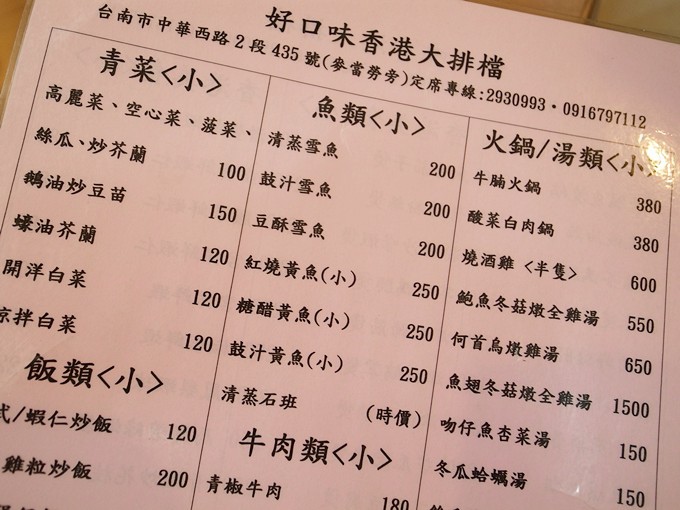 好口味香港大排檔
台南市中華西路2段435號(麥當勞旁)定席專線:2930993·0916797112
青菜<小>
高麗菜、空心菜、菠菜、
絲瓜、炒芥蘭 100
鵝油炒豆苗 150
蠔油芥蘭 120
開洋白菜 120
涼拌白菜 120
飯類<小>
式/蝦仁炒飯 120
雞粒炒飯 200
魚類<小>
清蒸雪魚 200
鼓汁雪魚 200
豆酥雪魚 200
紅燒黃魚(小) 250
糖醋黃魚(小) 250
鼓汁黃魚(小) 250
清蒸石班 (時價)
牛肉類<小>
青椒牛肉 180
火鍋/湯類<小>
牛腩火鍋 380
酸菜白肉鍋 380
燒酒雞<半隻> 600
鮑魚冬菇燉全雞湯 550
何首烏燉雞湯 650
魚翅冬菇燉全雞湯 1500
吻仔魚杏菜湯 150
冬瓜蛤蠣湯 150